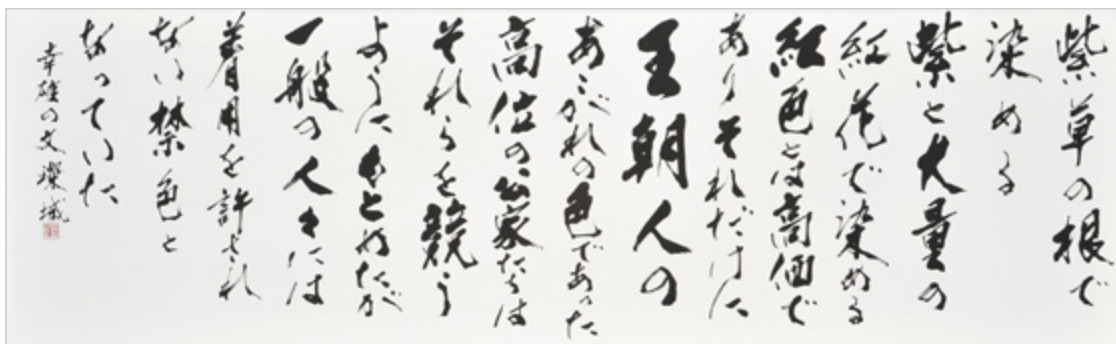 紫草の根で
染める
紫と大量の
紅花で染める
紅色とは高価で
ありそれだけに
王朝人の
あこがれの色であった
高位の公家たちは
それらを競う
ようにもとめたが
一般の人々には
着用を許され
ない禁色と
なっていた
幸雄の文 璨城